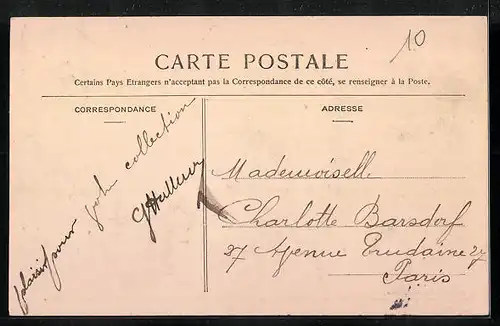 10
CARTE POSTALE
Certains Pays Etrangers n'acceptant pas la Correspondance de ce côté, se renseigner à la Poste.
CORRESPONDANCE
ADRESSE
plaisir pour
votre collection
Mademoiselle
Charlotte Barsdorf
27 Avenue Trudaine 27
Paris